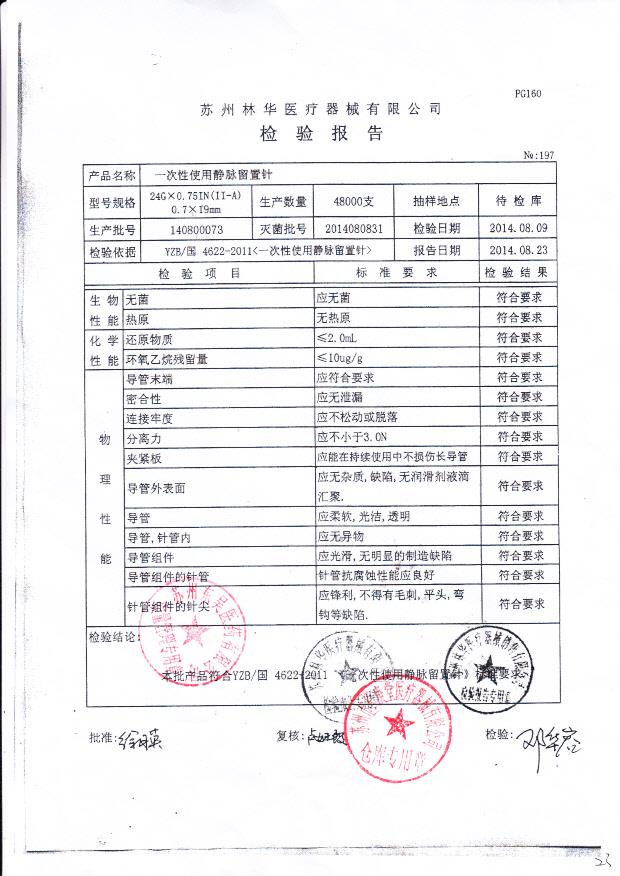 PG160
苏州林华医疗器械有限公司
检验报告
№:197
产品名称 一次性使用静脉留置针
型号规格 24G×0.75IN(II-A) 0.7×19mm 生产数量 48000支 抽样地点 待检库
生产批号 140800073 灭菌批号 2014080831 检验日期 2014.08.09
检验依据 YZB/国 4622-2011<一次性使用静脉留置针> 报告日期 2014.08.23
检验项目 标准要求 检验结果
生物性能 无菌 应无菌 符合要求
热原 无热原 符合要求
化学性能 还原物质 ≤2.0mL 符合要求
环氧乙烷残留量 ≤10ug/g 符合要求
物理性能 导管末端 应符合要求 符合要求
密合性 应无泄漏 符合要求
连接牢度 应不松动或脱落 符合要求
分离力 应不小于3.0N 符合要求
夹紧板 应能在持续使用中不损伤长导管 符合要求
导管外表面 应无杂质,缺陷,无润滑剂液滴
汇聚. 符合要求
导管 应柔软,光洁,透明 符合要求
导管,针管内 应无异物 符合要求
导管组件 应光滑,无明显的制造缺陷 符合要求
导管组件的针管 针管抗腐蚀性能应良好 符合要求
针管组件的针尖 应锋利,不得有毛刺,平头,弯
钩等缺陷. 符合要求
检验结论:
本批产品符合YZB/国 4622-2011 《一次性使用静脉留置针》标准要求
检验报告专用章
仓库专用章
批准: 复核: 检验:
23